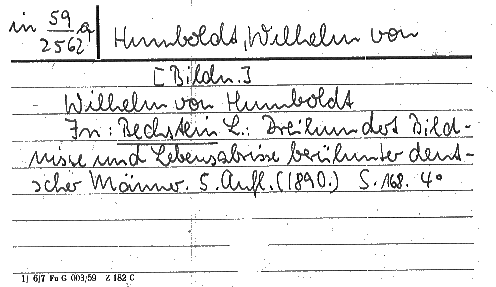 in 59/2562 a | Humboldt, Wilhelm von
[Bildn.]
Wilhelm von Humboldt
In: Bechstein L.: Dreihundert Bild-
nisse und Lebensabrisse berühmter deut-
scher Männer. 5. Aufl. (1890.) S. 168. 4°
1) 6/7 Fu G 003/59 Z 182 C